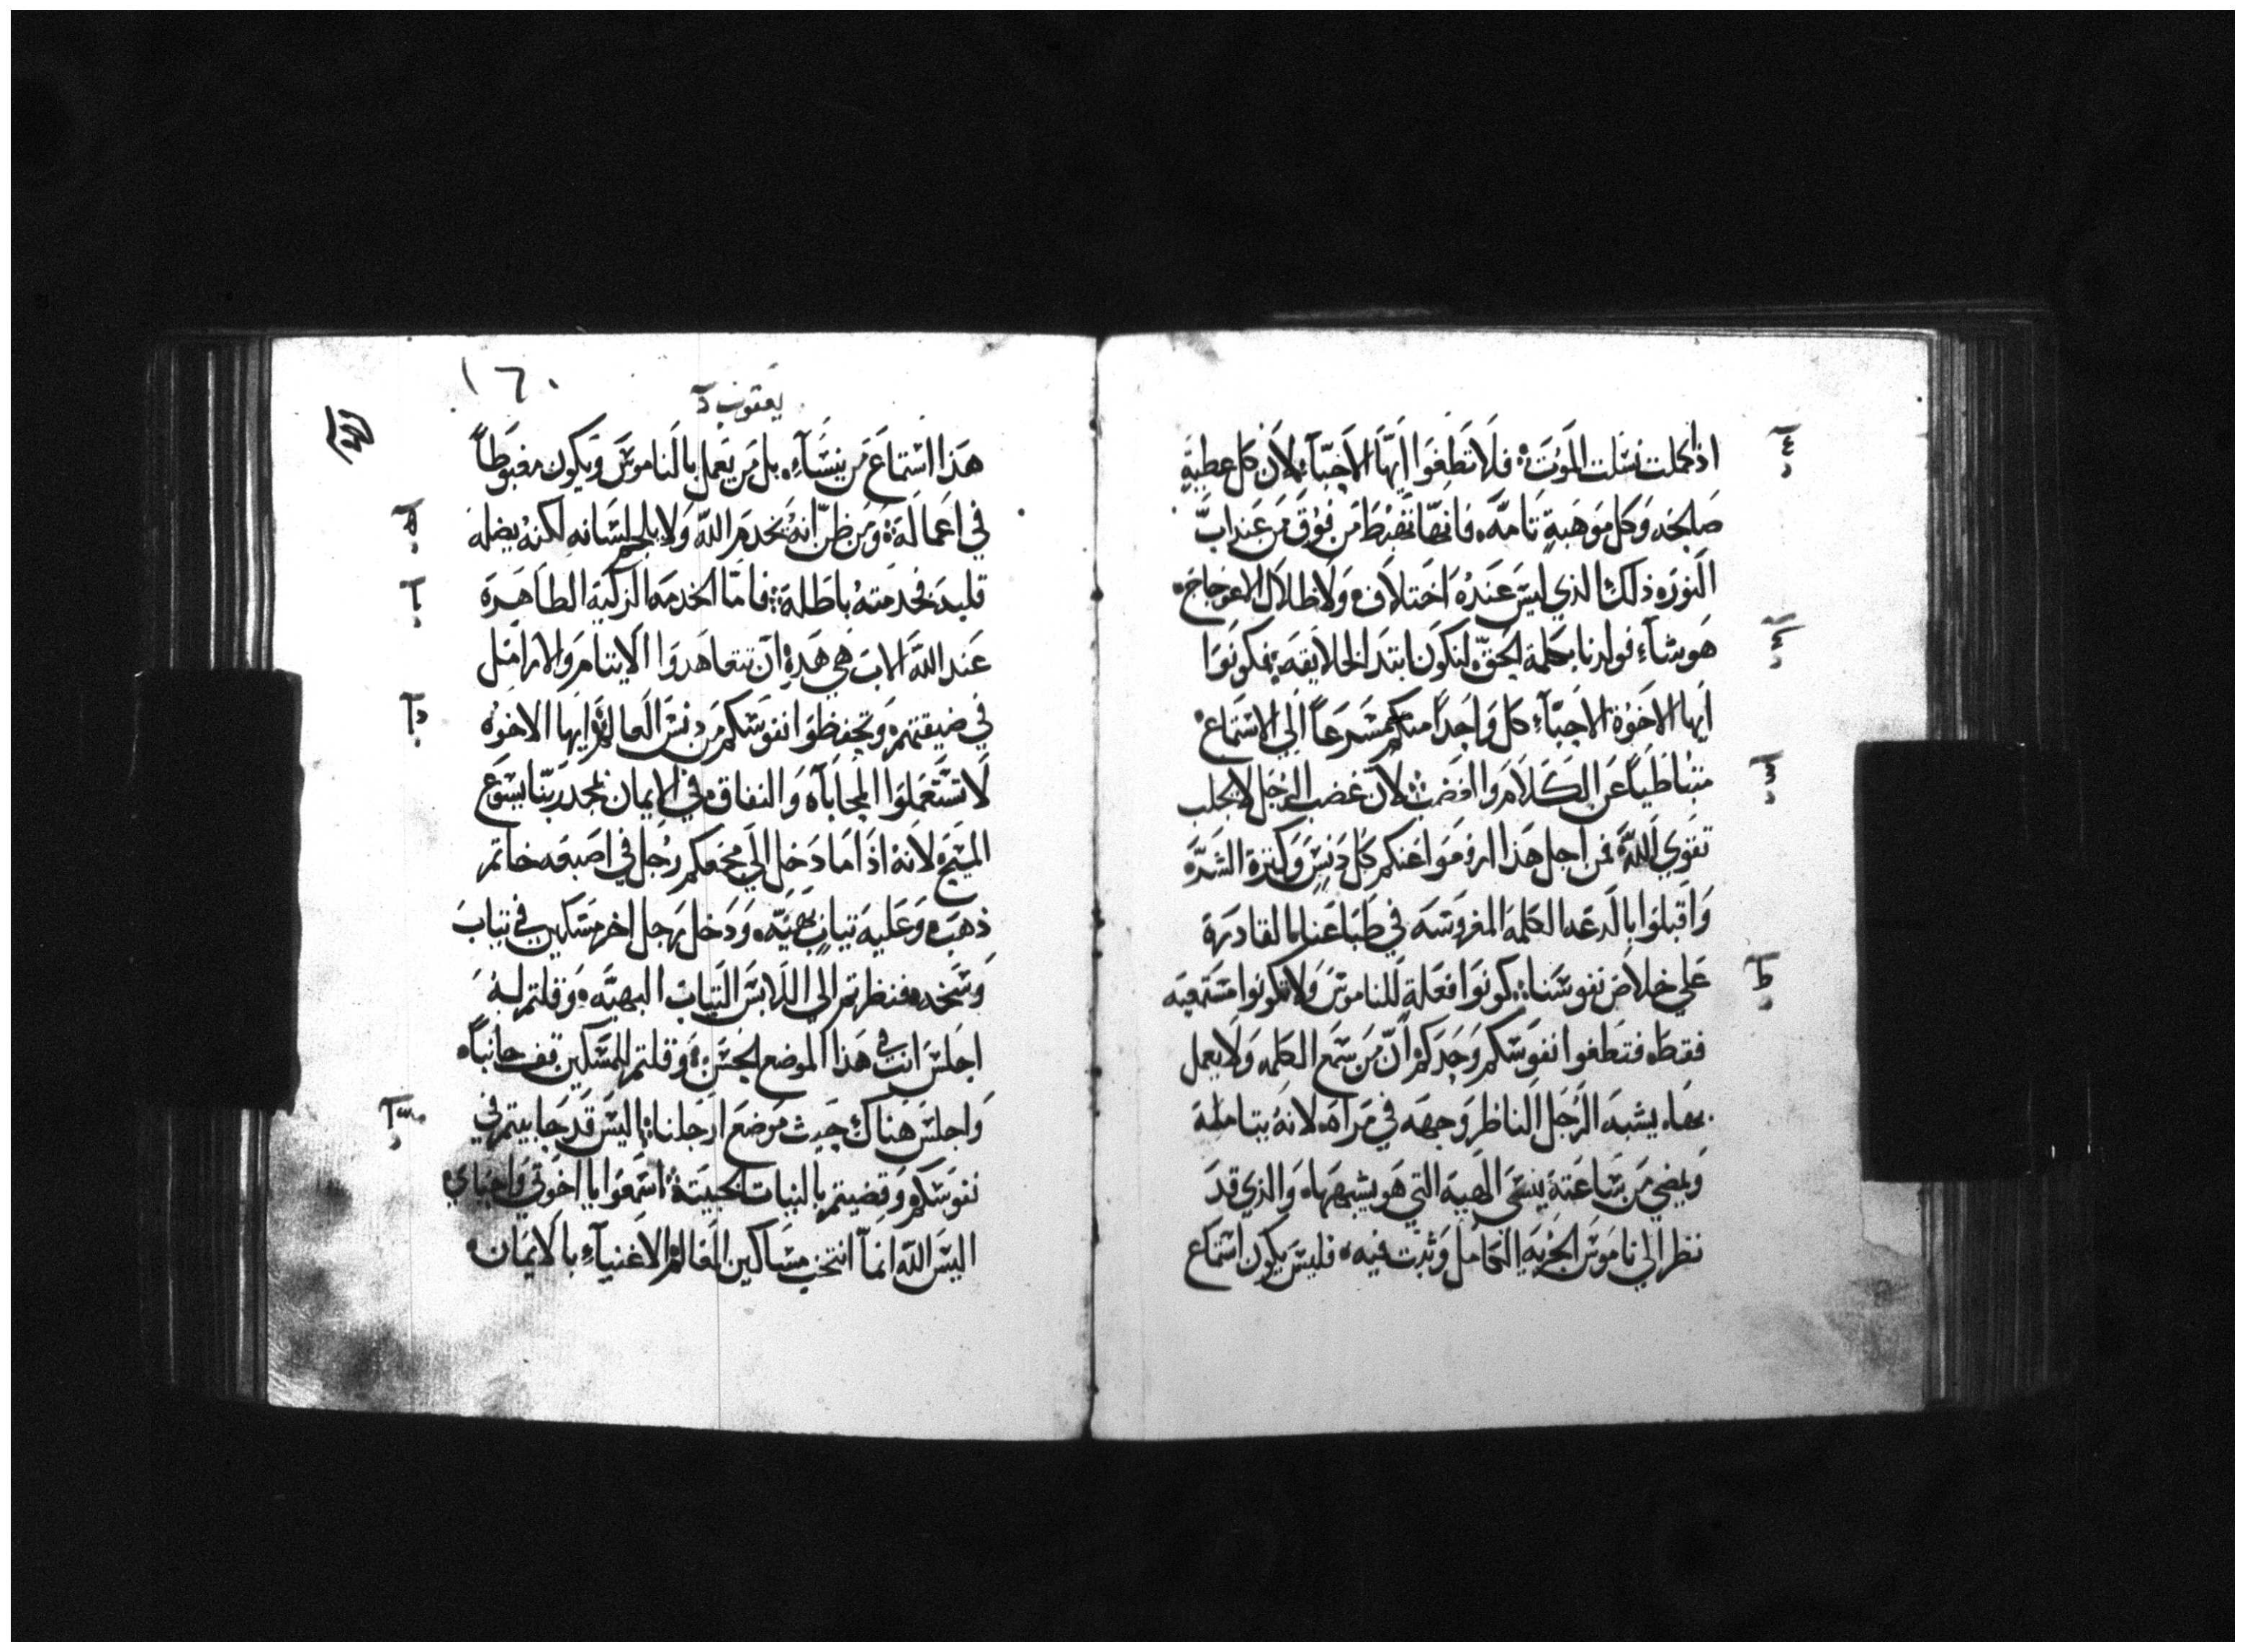 اذا كملت نسَلت المَوتَ؛ فلَا تَطغِوَا ايّهَا الاحَبّآءِ لاَن كل عطيةٍ
صَالحَه وَكل مَوَهَبةٍ تَامّه، فانهّا تهَبْطَ مَن فوُق مَن عَندابَّ
النورَه ذلك الذي ليسَ عَندهُ اخَتلاف، وَلَا ظلاَل الاعوَجاج،
هَو شآء فولدنا بكلمة الحَقّ، لنكوَن ابتدا الخلايقه، فكونوَا
ايها الاخوَة الاحَبّآءِ كل وَاحداً منكم مسَرعَاً الَي الاستماع
متبُاطَياً عَن الكَلاَم وَالغضب؛ لانّ غضب الرجل لا يجلب
تقوَي اللّه، فمَن اجل هَذا ارفوَا عَنكم كل دَنسٍ وَكثرة الشّرَه
وَاقبلوَا بالدعَه الكلمة المغروسَه في طبَاعَنا لمالقادرة
عَلي خلاصَ نفوسَنا؛ كونوَا فعَلةٍ للناموسَ وَلا تكونوا مستمعيَه
فقطَ، فتطغوا نفوَسَكم وَحَدكم، انّ مَن سَمَع الكلمه، وَلا يعمل
بهَا، يشبه الرجَل الناظر وَجهه في مَراه، لانهُ يتامله
وَيمضي مَن سَاعَته، ينسَى الهَيةِ التي هَو يشبههَا، وَالذي قدَ
نظر الَي نامَوسَ الحُريَه الكامل وَثبت فيه، فليسَ يكون استماع
١٦٠
يَعقوب
هَذا استماعَ مَن ينسَآءِ، بل مَن يَعمَل بالَناموسَ وَيكون مغبوَطاً
في اعَمالَه؛ وَمن ظنّ انهُ يخدمَ اللّه وَلا يلجم لسَانه لكنهُ يضله
قلبه فخدمتهُ باطَلهَ؛ فامّا الخدمَه الزكية الطَاهَرَة
عَند اللّه الاب هَي هَذهِ انّ تتعاهَدوَا الايتامَ وَالارامَل
في ضيقتهمَ، وَتحفظوَا نفوَسَكم مَن دنسَ العَالمَ؛ ايهَا الاخوَه
لَا تسَتعَملوَا المحَاباه وَالنفاق في الايمان بمجد ربنّا يسَوَع
المسَيح، لانهُ اذَا مَا دَخل الَي مَجمعكم رجَل في اصَبعَه خاتم
ذهَب، وَعَليه ثيابٍ بهَيّه، وَدَخل رَجل اخر مسَكين في ثيابَ
وَسَخه، فنظرتم الي اللَابسَ الثيابَ البهيّه، وَقلتم لهُ
اجلسَ انت في هَذا الموضع الحسَن، وَقلتم للمسَكين قف جانباً،
وَاجلسَ هَناك حَيث مَوضعَ ارَجلنا؛ اليسَ قَد حَابيتم في
نفوسَكم، وَقضيتم بالنيات الخبيثة؛ اسَمعَوَا يا اخوَتي وَاحَبَاي،
اليسَ اللّه انماّ انتخب مسَاكين العَالم، الاغنيآءِ بالَايمَان،